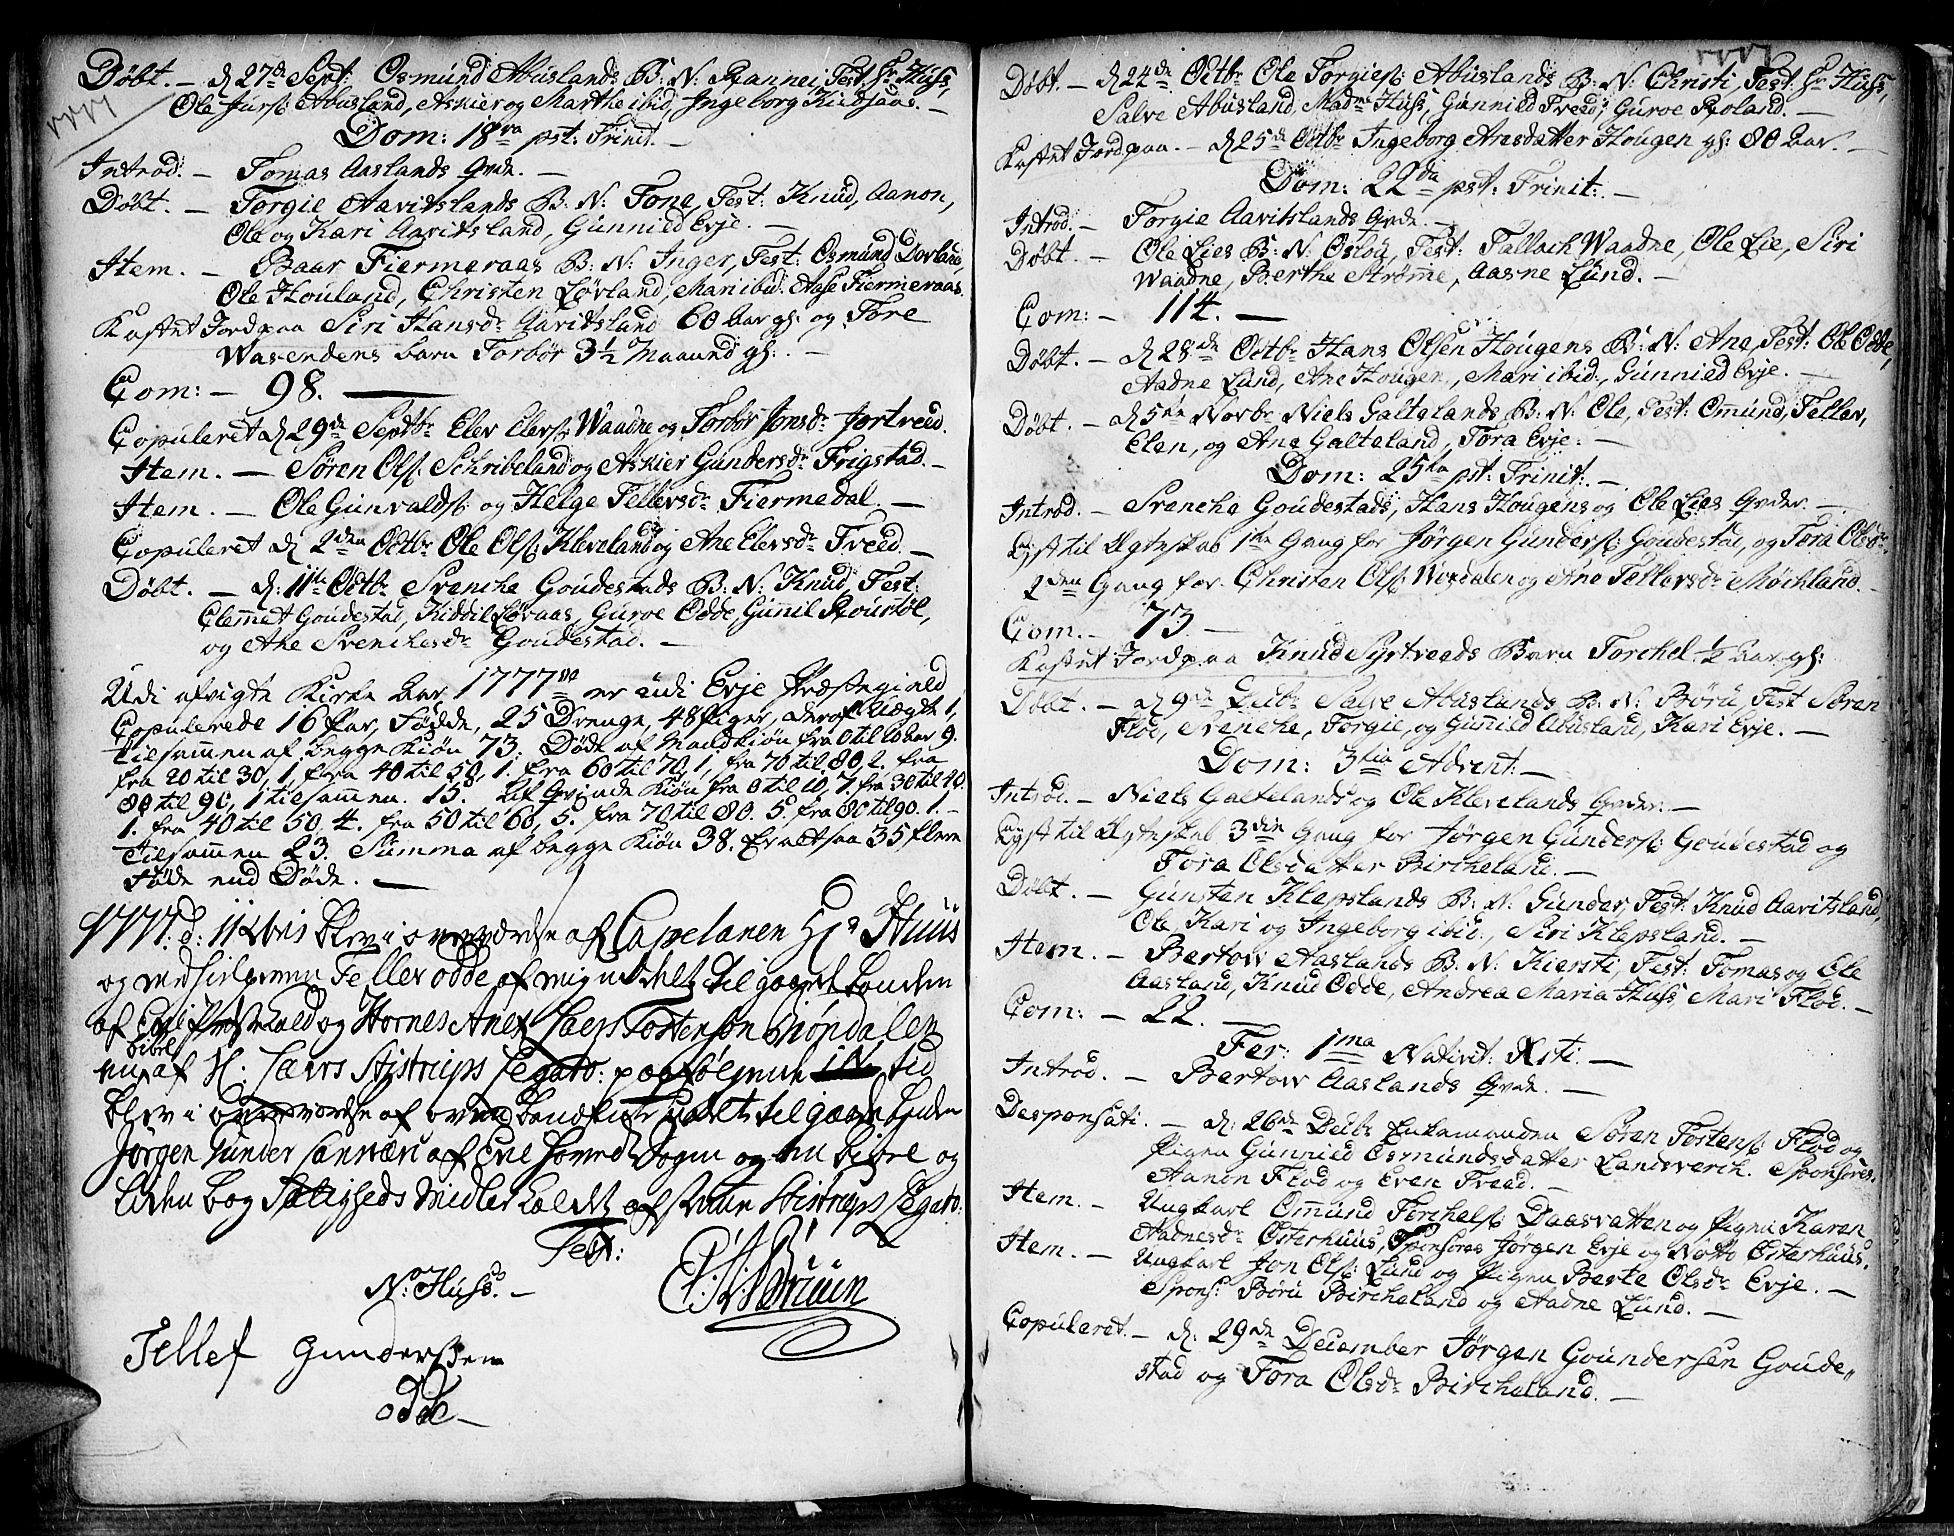 Døbt. – d 27de Sept: Osmund Abuslands B: N: Rannei, Test: Hr Huss,
Ole Jurs: Abusland, Askier og Marthe ibid, Ingeborg
1777
Dom: 18va pst: Trinit. –
Introd. – Tomas Aaslands Qvde. –
Døbt. – Torgie Aavitslands B: N: Tone, Test: Knud, Aanon,
Ole og Kari Aavitsland, Gunnild Evje. –
Item. – Baar Fiermeraas B: N: Inger, Test: Osmund Dovland,
Ole Houland, Christen Løvland, Mari ibid: Aase Fiermeraas.
Kastet Jord paa Siri Hansdr Aavitsland 60 Aar gl: og Tore
Wasendens barn Torbör 3½ Maaund gl: –
Com: – 98. –
Copuleret d 29de Septbr Elev Elevs: Waadne og Torbör Jonsdr Jortveed.
Item. – Søren Ols: Schribeland og Askier Gundersdr Frigstad. –
Item. – Ole Gunvalds: og Helge Tellevsdr Fiermedal –
Copuleret d 2den Octbr Ole Ols: Kleveland og Ane Elevsdr Treed. –
Døbt. – d: 11te Octbr Svencke Goudestads B: N: Knud, Test:
Clemmet Goudestad, Kiddil Løvaas, Guroe Odde, Gunnil Roustøl,
og Ane Svenckesdr Goudestad. –
Udi afvigte Kirke Aar 1777de er udi Evje Præstegield
Copulerede 16 Par, Fødde, 25 Drenge, 48 Piger, deraf Uægte 1,
tilsammen af begge Kiøn 73. Døde af Mandkiøn fra 0 til 10 aar 9.
fra 20 til 30, 1, fra 40 til 50, 1. fra 60 til 70, 1, fra 70 til 80, 2. fra
80 til 90, 1 tilsammen. 15. Af Qvinde Kiøn fra 0 til 10, 7. fra 30 til 40.
1. fra 40 til 50, 4. fra 50 til 60, 5. fra 70 til 80. 5. fra 80 til 90. 1. –
Tilsammen 23. Summa af begge Kiøn 38. Er altsaa 35 flere
Føde end Døde. –
1777: d: 11 Xbris blev i overværelse af Capelanen Hr Huus
og medhielperen Tellev Odde af mig uddelt til
af Evje og Hornes Anex Tostenson
bibel af H: Stistrups Legato: paa tid
blev i overværelse af til
Jørgen Gunder af Evje Hoved Sogn og en Bibel og
liden bog Saligheds Midler af Stistrups Legato:
Test:
N: Huss. –
Tellef Gunderssen
Odde –
1777
Døbt. – d 24de Octbr Ole Torgies: Abuslands B: N: Christi, Test: Hr Huss,
Salve Abusland, Madme Huss, Gunnild Treed, Guroe Roland. –
Kastet Jord paa. – d 25de Octbr Ingeborg Aresdatter Hougen gl: 80 Aar. –
Dom: 22da pst: Trinit: –
Introd. – Torgie Aavitslands Qvde. –
Døbt. – Ole Lies B: N: Oslou, Test: Tallach Waadne, Ole Lie, Siri
Waadne, Berthe Strømme, Aasne Lund. –
Com: – 114. –
Døbt. – d 28de Octbr Hans Olsen Hougens B: N: Ane, Test: Ole Odde,
Aadne Lund, Ane Hougen, Mari ibid:, Gunnild Evje. –
Døbt. – d 5te Novbr Niels Galtelands B: N: Ole, Test: Ommund, Tellev,
Elen, og Ane Galteland, Tora Evje. –
Dom: 25ta pst: Trinit. –
Introd. – Svencke Goudestads, Hans Hougens og Ole Lies Qvder. –
Lyst til Egteskab 1te Gang for Jørgen Gunders: Goudestad, og Tora Olsdr
2den Gang for Christen Ols: og Ane Tellevsdr Møchland. –
Com. – 73 –
Kastet Jord paa Knud Syrtveeds Barn Torchel ½ Aar gl:
Døbt. – d 9de Decbr Salve Abuslands B: N: Børu, Test Søren
Flod, Svencke, Torgie, og Gunnild Abusland, Kari Evje. –
Dom: 3tia Advent: –
Introd. – Niels Galtelands og Ole Klevelands Qvder. –
Lyst til Egteskab 3die Gang for Jørgen Gunders: Goudestad og
Tora Olsdatter Bircheland. –
Døbt. – Gunsten Klepslands B: N: Gunder, Test: Knud Aavitsland,
Ole, Kari og Ingeborg ibid:, Siri Klepsland. –
Item. – Bertow Aaslands B: N: Kiersti, Test: Tomas og Ole
Aasland, Knud Odde, Andrea Maria Huss, Mari Flod. –
Com: – 22. –
Fer: 1ma Nativit: Xsti. –
Introd. – Bertow Aaslands Qvde. –
Desponsati. – d: 26de Decbr Enkemanden Søren Tostens: Flod og
Pigen Gunnild Osmundsdatter Landsverk. Sponsores.
Aanon Flod og Even Treed. –
Item. – Ungkarl Ommund Torchels: Daasvatten og Pigen Karen
Aadnesdr Østerhuus, Sponsores Jørgen Evje og Notto Østerhuus.
Item. – Ungkarl Jon Ols: Lund og Pigen Berte Olsdr Evje. –
Spons: Børu Bircheland og Aadne Lund. –
Copuleret. – d: 29de December Jørgen Goundersen Goude„
stad og Tora Olsdr Bircheland. –